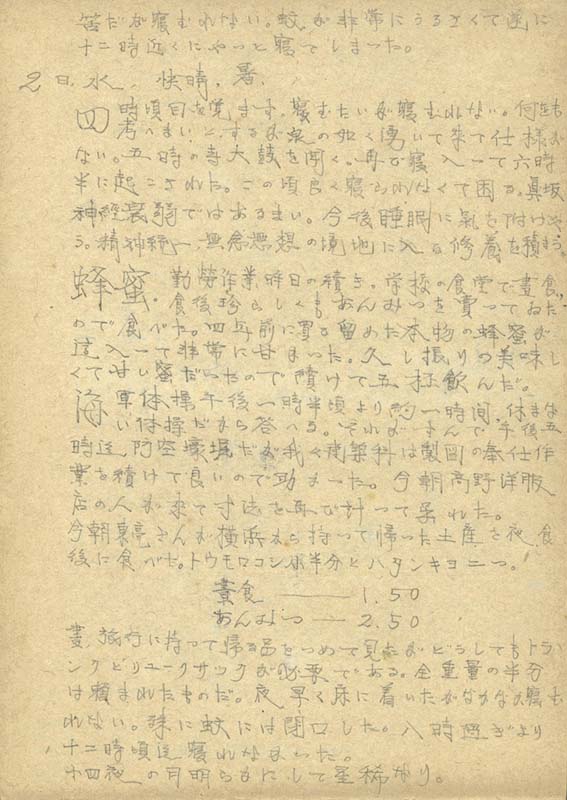 だが寝むれない。蚊が非常にうるさくて遂に
十二時近くにやっと寝てしまった。
2日、水、快晴、暑、
四時頃目を覚ます。寝むたいが寝むれない。何をも
考へまいとするが泉の如く湧いて来て仕様が
ない。五時の寺大鼓を聞く。再び寝入って六時
半に起こされた。この頃良く寝られなくて困る。真坂
神経衰弱ではあるまい。今後睡眠に氣を附けや
う。精神統一、無念無想の境地に入る修養を積まう。
蜂蜜。勤労作業昨日の積き。学校の食堂で晝食。
食後珍らしくもあんみつを賣ってゐた
ので食べた。四年前に買ひ留めた本物の蜂蜜が
這入って非常に甘まかった。久し振りの美味し
くて甘い蜜だったので積けて五杯飲んだ。
海軍体操午後一時半頃より約一時間、休まな
い体操だから答へる。それがすんで午後五
時迄防空壕堀だが我々建築科は製図の奉仕作
業を積けて良いので助かった。今朝高野洋服
店の人が来て寸法を再び計って呉れた。
今朝 さんが横浜から持って帰った土産を夜食
後に食べた。トウモロコシ小半分とハタンキョ二つ。
晝食 ―― 1.50
あんみつ ―― 2.50
晝、旅行に持って帰る品をつめて見たがどうしてもトラ
ンクとリュークサックが必要である。全重量の半分
は頼まれたものだ。夜早く床に着いたがなかなか寝む
れない。殊に蚊には閉口した。八時過ぎより
十二時頃迄寝れなかった。
十四夜の月明らかにして星稀なり。